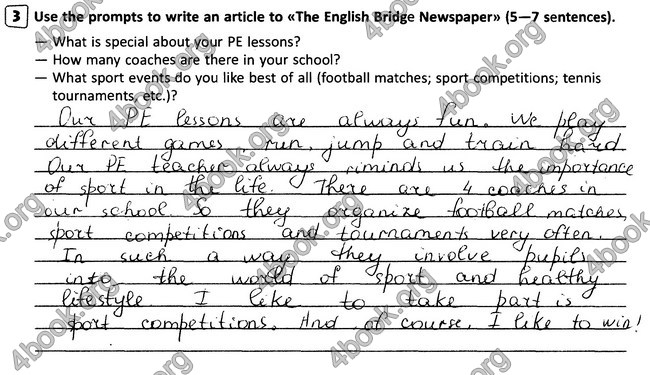 3 Use the prompts to write an article to «The English Bridge Newspaper» (5—7 sentences).
— What is special about your PE lessons?
— How many coaches are there in your school?
— What sport events do you like best of all (football matches; sport competitions; tennis
tournaments, etc.)?
Our PE lessons are always fun. We play
different games, run, jump and train hard.
Our PE teacher always riminds us the importance
of sport in the life. There are 4 coaches in
our school. So they organize football matches,
sport competitions and tournaments very often.
In such a way they involve pupils
into the world of sport and healthy
lifestyle. I like to take part is
sport competitions. And, of course, I like to win!
4book.org